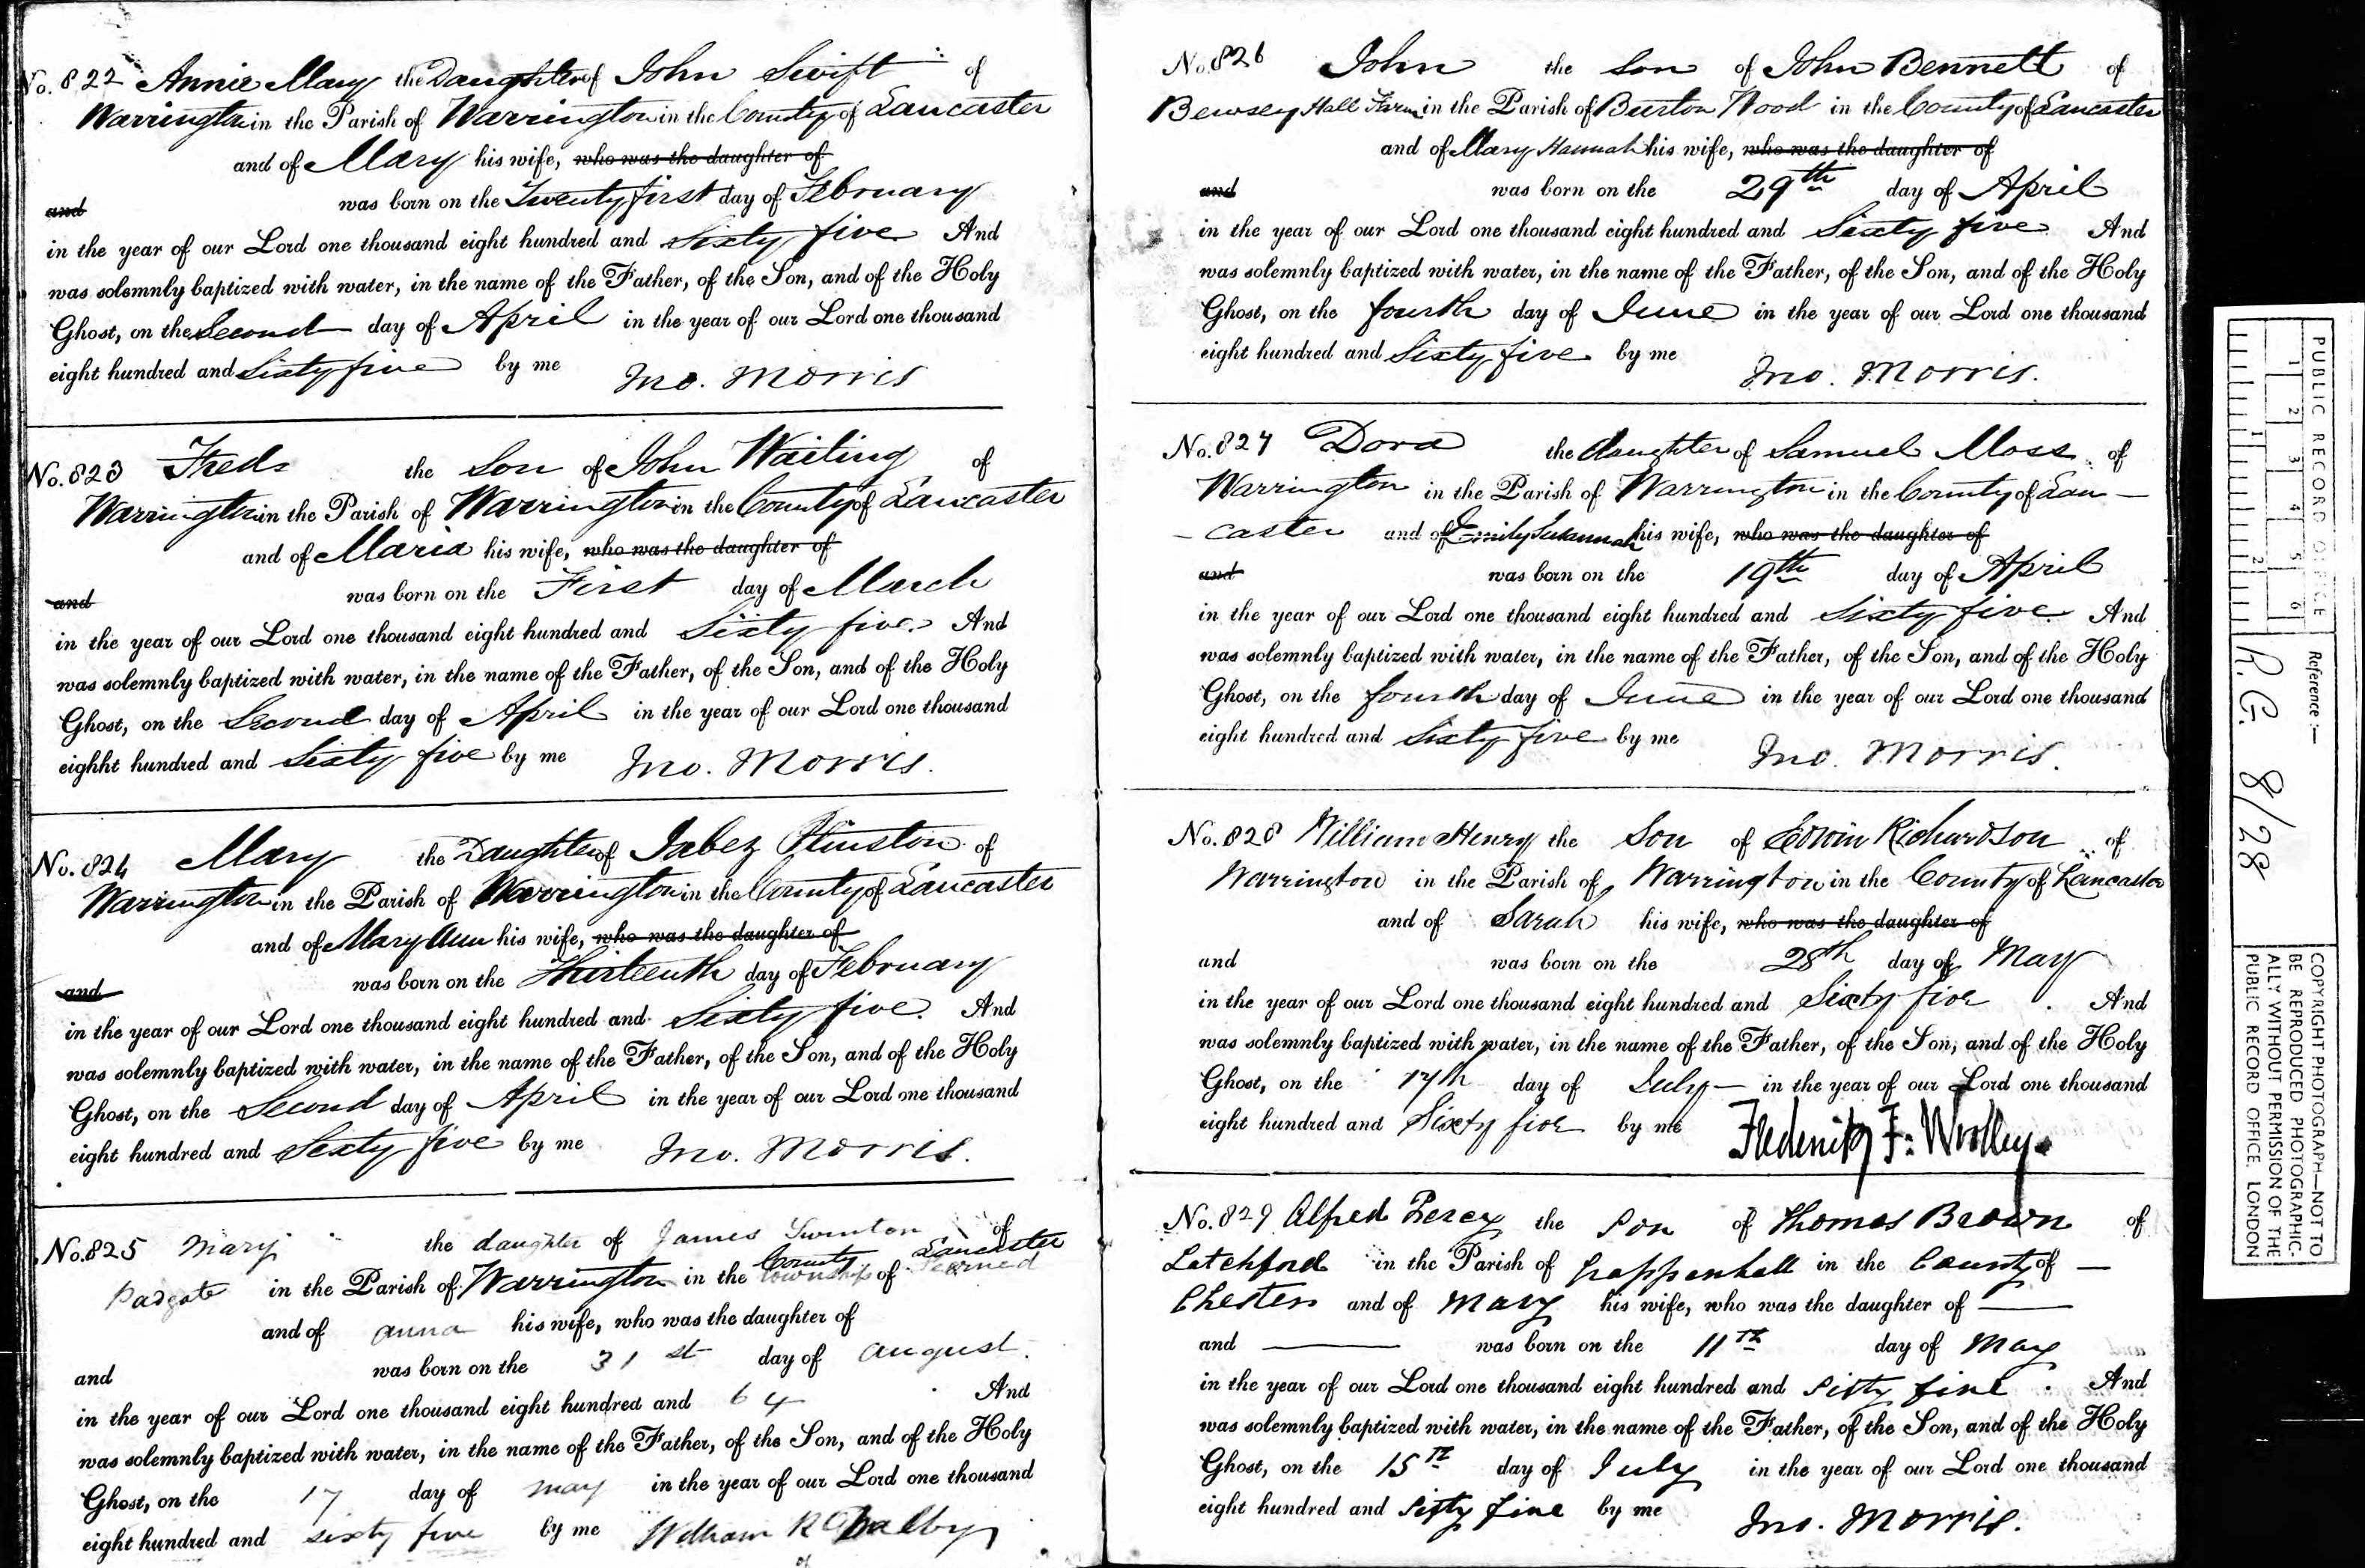 No. 822 Annie Mary the Daughter of John Swift of
Warrington in the Parish of Warrington in the County of Lancaster
and of Mary his wife, who was the daughter of
and was born on the Twenty first day of February
in the year of our Lord one thousand eight hundred and Sixty five And
was solemnly baptized with water, in the name of the Father, of the Son, and of the Holy
Ghost, on the Second day of April in the year of our Lord one thousand
eight hundred and Sixty five by me Jno. Morris
No. 823 Fredk the Son of John Waiting of
Warrington in the Parish of Warrington in the County of Lancaster
and of Maria his wife, who was the daughter of
and was born on the First day of March
in the year of our Lord one thousand eight hundred and Sixty five. And
was solemnly baptized with water, in the name of the Father, of the Son, and of the Holy
Ghost, on the Second day of April in the year of our Lord one thousand
eighht hundred and Sixty five by me Jno. Morris.
No. 824 Mary the Daughter of Jabez Hinston of
Warrington in the Parish of Warrington in the County of Lancaster
and of Mary Ann his wife, who was the daughter of
and was born on the Thirteenth day of February
in the year of our Lord one thousand eight hundred and Sixty five. And
was solemnly baptized with water, in the name of the Father, of the Son, and of the Holy
Ghost, on the Second day of April in the year of our Lord one thousand
eight hundred and Sixty five by me Jno. Morris.
No. 825 Mary the daughter of James Swinton of
Padgate in the Parish of Warrington in the County township of Lancaster
and of anna his wife, who was the daughter of
and was born on the 31st day of august.
in the year of our Lord one thousand eight hundred and 64 And
was solemnly baptized with water, in the name of the Father, of the Son, and of the Holy
Ghost, on the 17 day of may in the year of our Lord one thousand
eight hundred and sixty five by me William R Dalby
No. 826 John the Son of John Bennett of
Bewsey Hall Farm in the Parish of Burton Wood in the County of Lancaster
and of Mary Hannah his wife, who was the daughter of
and was born on the 29th day of April
in the year of our Lord one thousand eight hundred and Sixty five And
was solemnly baptized with water, in the name of the Father, of the Son, and of the Holy
Ghost, on the fourth day of June in the year of our Lord one thousand
eight hundred and Sixty five by me Jno. Morris.
No. 827 Dora the daughter of Samuel Moss of
Warrington in the Parish of Warrington in the County of Lan—
—caster and of Emily Susannah his wife, who was the daughter of
and was born on the 19th day of April
in the year of our Lord one thousand eight hundred and Sixty five. And
was solemnly baptized with water, in the name of the Father, of the Son, and of the Holy
Ghost, on the fourth day of June in the year of our Lord one thousand
eight hundred and Sixty five by me Jno. Morris.
No. 828 William Henry the Son of Edwin Richardson of
Warrington in the Parish of Warrington in the County of Lancaster
and of Sarah his wife, who was the daughter of
and was born on the 28th day of May
in the year of our Lord one thousand eight hundred and Sixty five. And
was solemnly baptized with water, in the name of the Father, of the Son, and of the Holy
Ghost, on the 17th day of July — in the year of our Lord one thousand
eight hundred and Sixty five by me Frederick F. Woolley.
No. 829 Alfred Percy the Son of Thomas Brown of
Latchford in the Parish of Grappenhall in the County of —
Chester and of Mary his wife, who was the daughter of —
and — was born on the 11th day of May
in the year of our Lord one thousand eight hundred and Sixty five. And
was solemnly baptized with water, in the name of the Father, of the Son, and of the Holy
Ghost, on the 15th day of July in the year of our Lord one thousand
eight hundred and Sixty five by me Jno. Morris.
PUBLIC RECORD OFFICE
1 2 3 4 5 6
1 2
Reference:—
R.G. 8/28
COPYRIGHT PHOTOGRAPH—NOT TO
BE REPRODUCED PHOTOGRAPHIC-
ALLY WITHOUT PERMISSION OF THE
PUBLIC RECORD OFFICE, LONDON